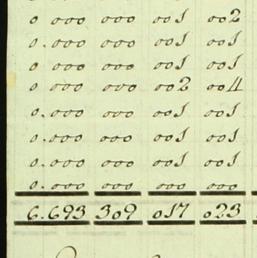 0.000 000 001 002
0.000 000 001 001
0.000 000 001 001
0.000 000 002 004
0.000 000 001 001
0.000 000 001 001
0.000 000 001 001
0.000 000 000 000
6.693 309 017 023